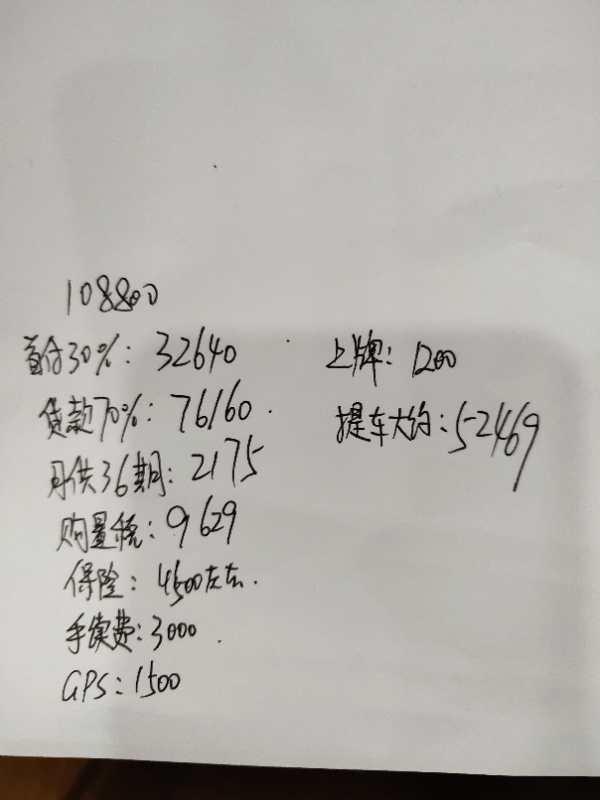 108800
首付30%：32640
贷款70%：76160.
月供36期：2175
购置税：9629
保险：4500左右.
手续费：3000.
GPS：1500
上牌：1200
提车大约：52469